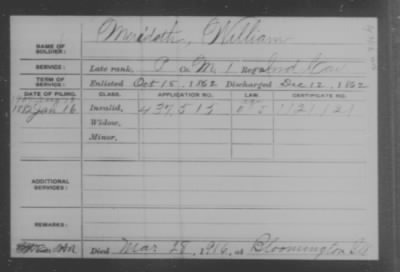 NAME OF SOLDIER: William
SERVICE: Late rank, P Co. M, 1 Reg't Ind
TERM OF SERVICE: Enlisted Oct 15, 1862 Discharged Dec 12, 1862
DATE OF FILING. CLASS. APPLICATION NO. LAW. CERTIFICATE NO.
Jan 16 Invalid, 437515
Widow,
Minor,
ADDITIONAL SERVICES:
REMARKS:
Died Mar 28, 1916, at Bloomington